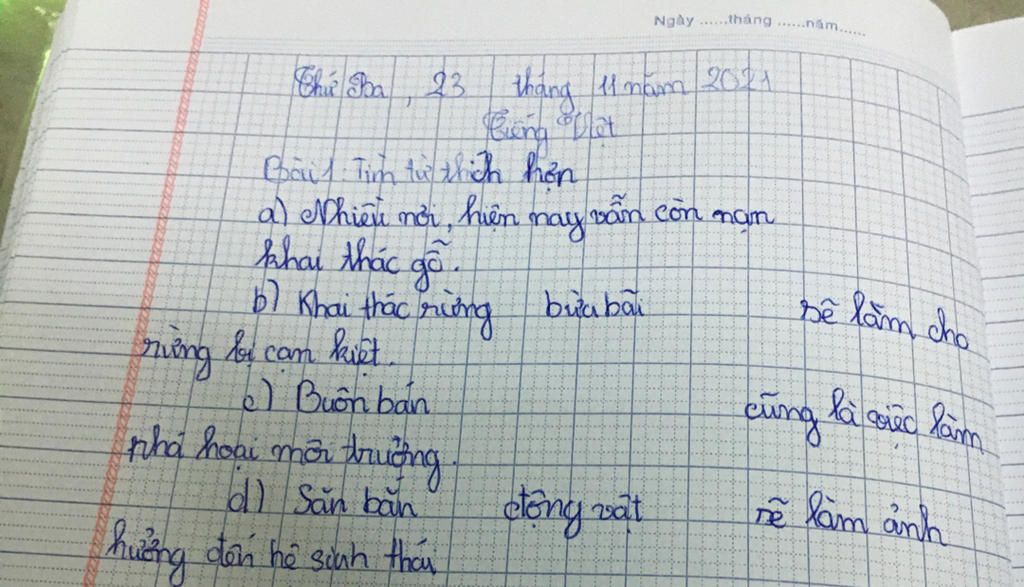 Ngày ......tháng ......năm......
Thứ Ba, 23 tháng 11 năm 2021
Tiếng Việt
Bài 1. Tìm từ thích hợp
a) Nhiều nơi, hiện nay vẫn còn nạn
khai thác gỗ.
b) Khai thác rừng bừa bãi sẽ làm cho
rừng bị cạn kiệt.
c) Buôn bán cũng là việc làm
phá hoại môi trường.
d) Săn bắn động vật sẽ làm ảnh
hưởng đến hệ sinh thái